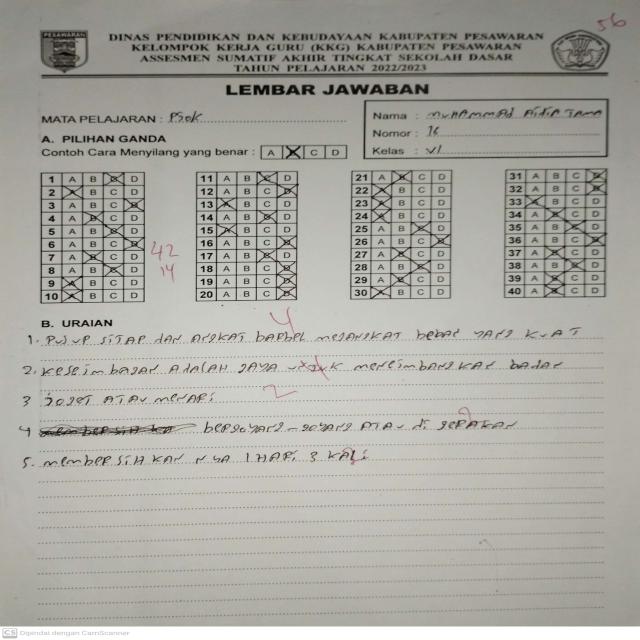 56
PESAWARAN
DINAS PENDIDIKAN DAN KEBUDAYAAN KABUPATEN PESAWARAN
KELOMPOK KERJA GURU (KKG) KABUPATEN PESAWARAN
ASSESMEN SUMATIF AKHIR TINGKAT SEKOLAH DASAR
TAHUN PELAJARAN 2022/2023
LEMBAR JAWABAN
MATA PELAJARAN : PJOK
Nama : MUHAMMAD
Nomor : 16
Kelas : VI
A. PILIHAN GANDA
Contoh Cara Menyilang yang benar : A B C D
1 A B C D
2 A B C D
3 A B C D
4 A B C D
5 A B C D
6 A B C D
7 A B C D
8 A B C D
9 A B C D
10 A B C D
42
14
11 A B C D
12 A B C D
13 A B C D
14 A B C D
15 A B C D
16 A B C D
17 A B C D
18 A B C D
19 A B C D
20 A B C D
21 A B C D
22 A B C D
23 A B C D
24 A B C D
25 A B C D
26 A B C D
27 A B C D
28 A B C D
29 A B C D
30 A B C D
31 A B C D
32 A B C D
33 A B C D
34 A B C D
35 A B C D
36 A B C D
37 A B C D
38 A B C D
39 A B C D
40 A B C D
B. URAIAN
4
1. PUSUP SITAP DAN ANGKAT BARBEL MEGANGKAT BEBAN YANG KUAT
2. KESEIMBAGAN ADALAH GAYA MENEIMBANGKAN BADAN
2
3 JOGET ATAU MENARI
4 BERGOYANG - GOYANG ATAU DI GERAKAN
5. MEMBERSIHKAN NYA 1 HARI 3 KALI
CS Dipindai dengan CamScanner